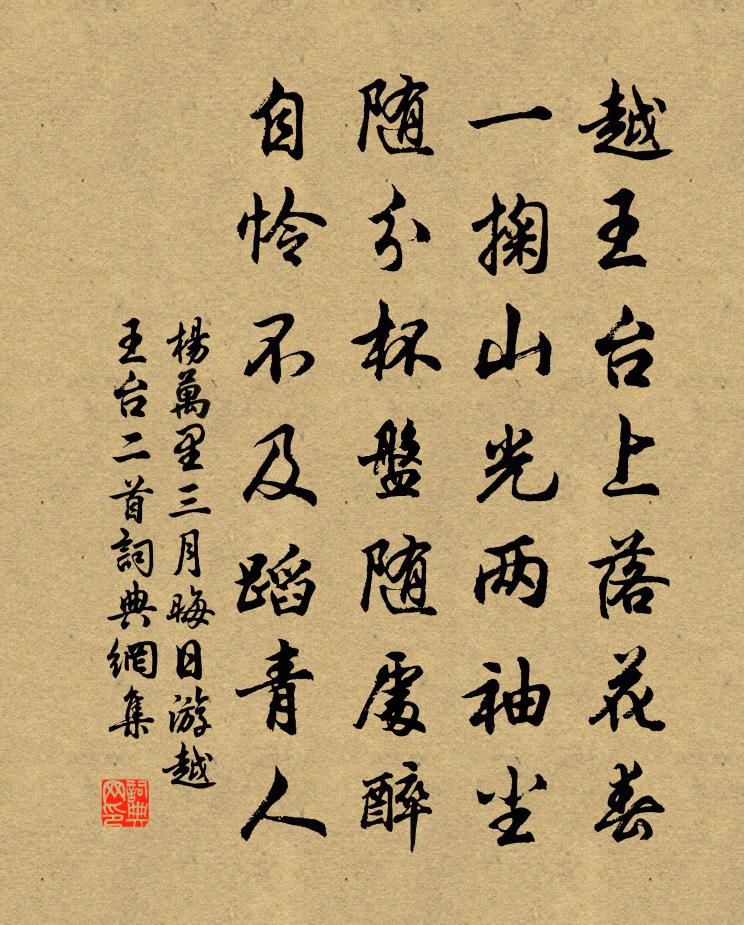 越王台上落花春
一掬山光两袖尘
随分杯盤随處醉
自怜不及蹈青人
楊萬里三月晦日游越
王台二首詞典網集
詞典
网印